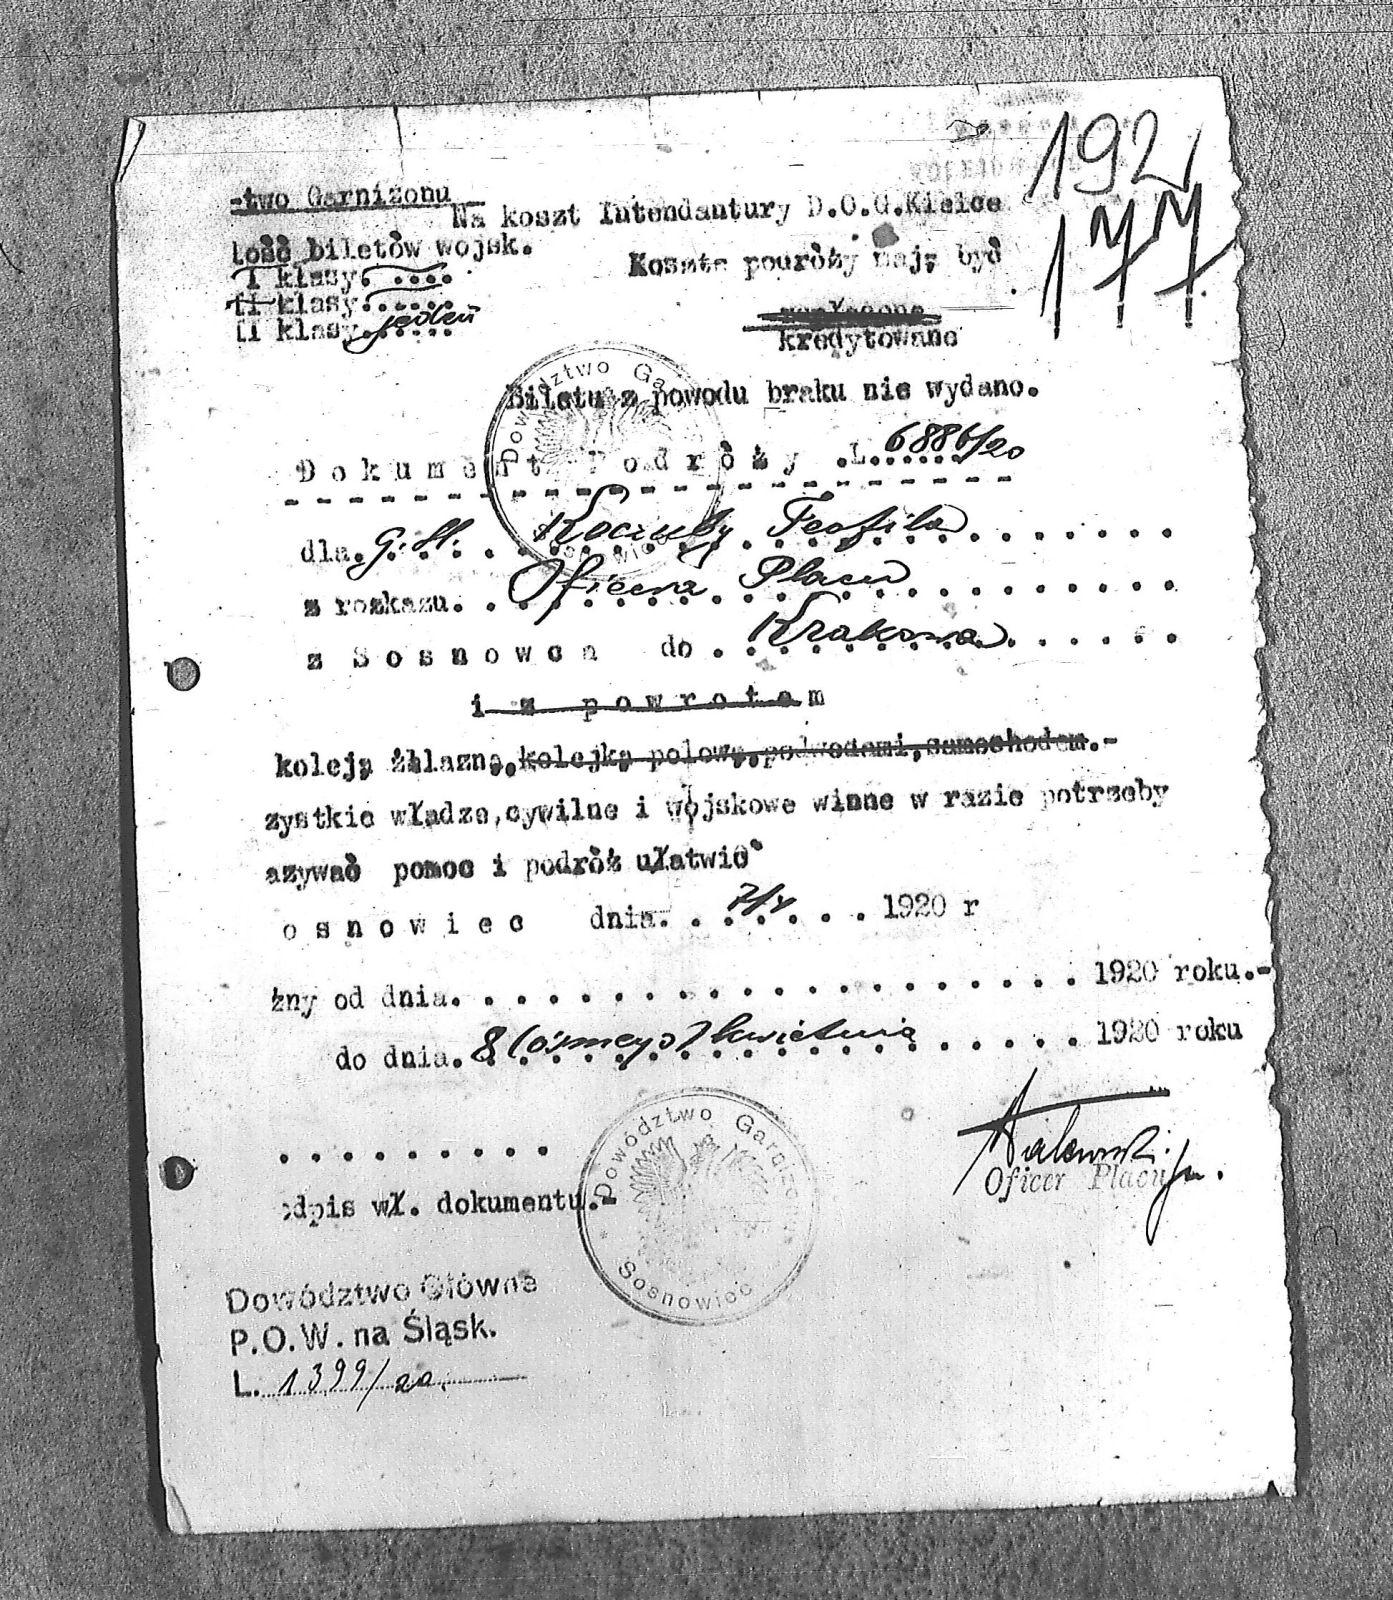 192
177
-two Garnizonu
Na koszt Intendantury D.O.G.Kielce
lość biletów wojsk.
Koszta podróży mają być
I klasy......
II klasy......
II klasy jeden
kredytowane
Biletu z powodu braku nie wydano.
Dokument Podróży .L. 6886/20
dla. G.St. Koczuby Teofila
z rozkazu. Oficera Placu
z Sosnowca do . Krakowa
i z powrotem
koleją żhlazną, kolejką polową, podwodami, samochodem.-
zystkie władze, cywilne i wojskowe winne w razie potrzeby
azywać pomoc i podróż ułatwić
osnowiec dnia. 7/4 1920 r
żny od dnia. . . . . . . . . . . . . . . . . . . . 1920 roku.-
do dnia. 8 (ósmego) kwietnia 1920 roku
. . . . . . . . .
Oficer Placu
dpis wł. dokumentu.-
Dowództwo Garnizonu
Sosnowiec
Dowództwo Główne
P.O.W. na Śląsk.
L. 1399/20.